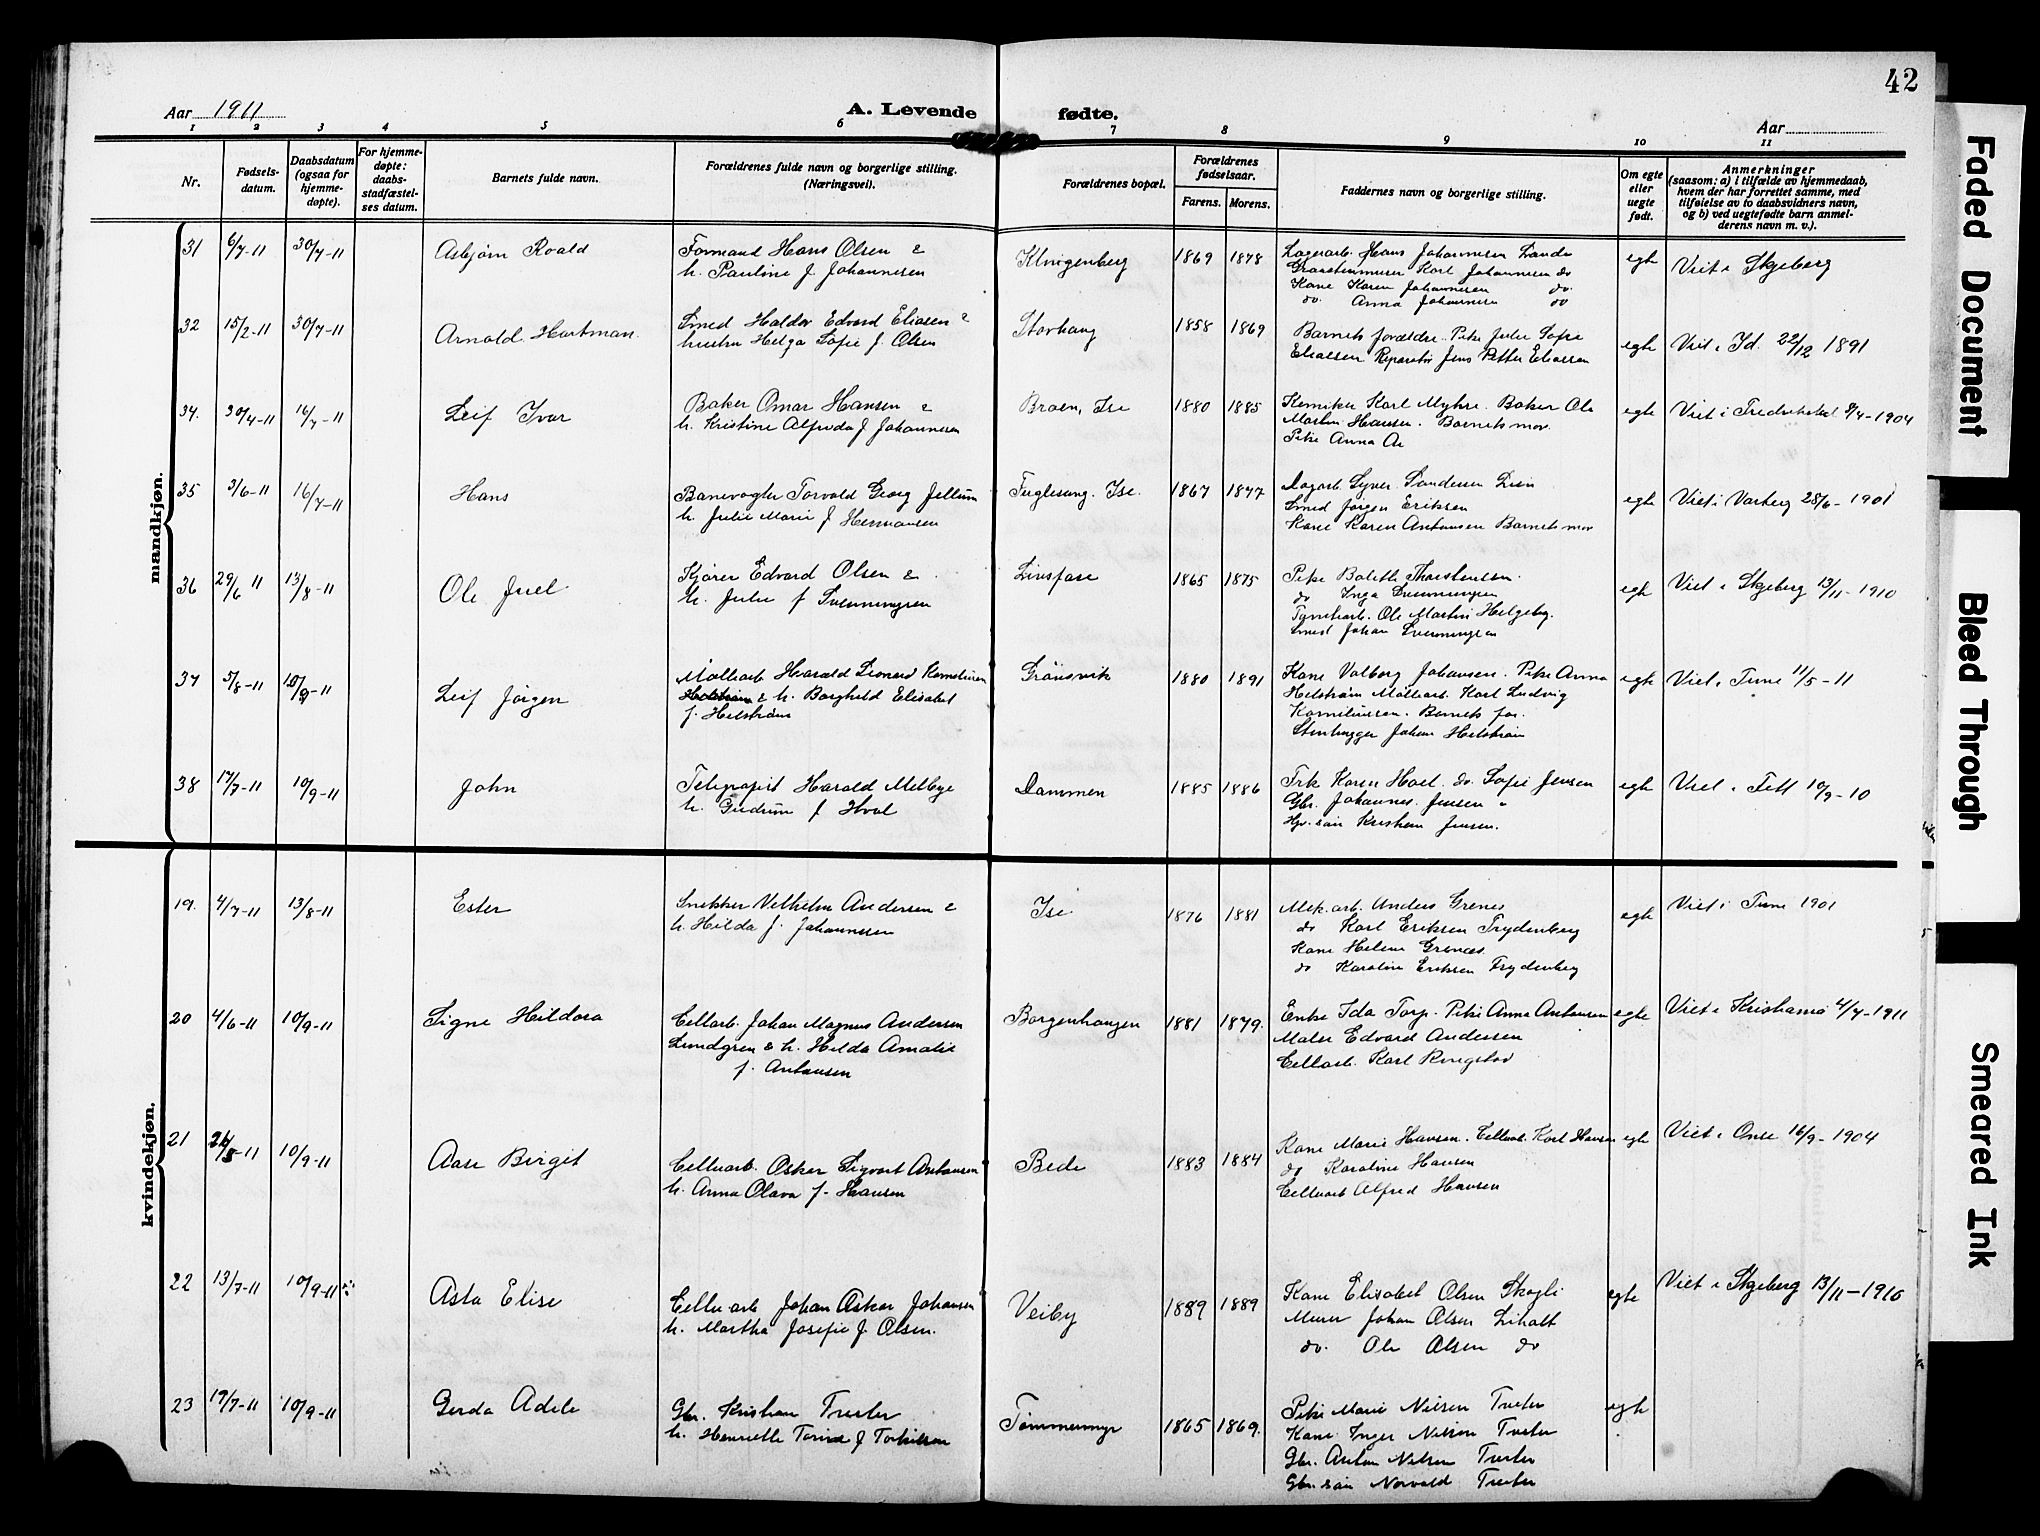 42
Aar 1911
A. Levende fødte.
Aar
1 2 3 4 5 6 7 8 9 10 11
Nr.
Fødsels-
datum.
Daabsdatum
(ogsaa for
hjemme-
døpte).
For hjemme-
døpte:
daabs-
stadfæstel-
ses datum.
Barnets fulde navn.
Forældrenes fulde navn og borgerlige stilling.
(Næringsvei).
Forældrenes bopæl.
Forældrenes
fødselsaar.
Farens. Morens.
Faddernes navn og borgerlige stilling.
Om egte
eller
uegte
født.
Anmerkninger
(saasom: a) i tilfælde av hjemmedaab,
hvem der har forrettet samme, med
tilføielse av to daabsvidners navn,
og b) ved uegtefødte barn anmel-
derens navn m. v.).
mandkjøn.
31 6/7-11 30/7-11 Asbjørn Roald
Formand Hans Olsen &
h. Pauline f. Johannesen
Klingenberg 1869 1878
Lagerarb. Hans Johannesen Sande
Karl Johannesen do
Kone Karen Johannesen do.
do. Anna Johannesen do
egte Viet i Skjeberg
32 15/2-11 30/7-11 Arnold Hartman.
Smed Haldor Edvard Eliasen &
hustru Helga Sofie f. Olsen
Storhaug 1858 1869
Barnets forældre. Pike Julie Sofie
Eliassen Reparatør Jens Petter Eliassen
egte Viet i Id. 22/12 1891
34. 30/4-11 16/7-11 Leif Ivar
Baker Omar Hansen &
h. Kristine Alfrida f. Johannesen
Braen, Ise 1880 1885
Kemiker Karl Myhre. Baker Ole
Martin Hansen. Barnets mor.
Pike Anna
egte Viet i Fredrikstad 9/4-1904
35 3/6-11 16/7-11 Hans
Banevogter Torvald Georg Jellum
h. Julie Marie f. Hermansen
Fuglesang. Ise. 1867 1877
Syver Sandersen
Smed Jørgen Eriksen
Kone Karen Antonsen Barnets mor
egte Viet i Varteig 28/6-1901
36 29/6 11 13/8-11 Ole Juel
Kjører Edvard Olsen &
h. Julie f. Svenningsen
1865 1875
Pike Bolette Thorstensen.
do Inga Svenningsen
Tomtearb. Ole Martin Helgeby.
Smed Johan Svenningsen
egte Viet i Skjeberg 13/11-1910
37 5/8-11 10/9-11 Leif Jørgen
Møllearb Harald Leonard Kornelíusen
Helstrøm & h. Borghild Elisabet
f. Helstrøm
Grønsvik 1880 1891
Kone Valborg Johansen. Pike Anna
Helstrøm Møllearb. Karl Ludvig
Korneliusen. Barnets far.
Stenhugger Johan Helstrøm
egte Viet i Tune 11/5-11
38 17/7-11 10/9-11 John
Telegrafist Harald Melbye
h. Gudrun f. Hval
Dammen 1885 1886
Frk Karen Hoel. do. Sofie Jensen
Gbr. Johannes Jensen "
Gbr. søn Kristian Jensen.
egte Viet i Fett 10/9-10
kvindekjøn.
19. 4/7-11 13/8-11 Ester
Snekker Vilhelm Andersen &
h. Hilda f. Johannesen
Ise 1876 1881
Mek.arb. Anders Grenes
do Karl Eriksen Frydenberg
Kone Helene Grenæs
do Karoline Eriksen Frydenberg
egte Viet i Tune 1901
20 4/6-11 10/9-11 Signe Hildora
Cellarb. Johan Magnus Andersen
Lundgren & h. Hilda Amalie
f. Antonsen
Borgenhaugen 1881 1879.
Enke Ida Torp. Pike Anna Antonsen
Maler Edvard Andersen
Cellarb. Karl Ringstad
egte Viet i Kristiania 4/7-1911
21 24/5-11 10/9-11 Aase Birgit
Celluarb. Oskar Sigvart Antonsen
h. Anna Olava f. Hansen
Bede 1883 1884
Kone Marie Hansen. Celluarb. Karl Hansen
do Karoline Hansen
Celluarb Alfred Hansen
egte Viet i Onsø 16/9-1904
22 13/7-11 10/9-11 Asta Elise
Celluarb Johan Oskar Johansen
h. Martha Josefie f. Olsen.
Veiby 1889 1889
Kone Elisabet Olsen Skogli
Murer Johan Olsen Lihalt
do. Ole Olsen do
egte Viet i Skjeberg 13/11-1910
23 19/7-11 10/9-11 Gerda Adele
Gbr. Kristian Treter
h. Henriette Torine f. Torkildsen
Tømmermyr 1865 1869.
Pike Marie Nilsen Treter
Kone Inger Nilsen Treter
Gbr. Anton Nilsen Treter
Gbr.søn Norvald Treter
egte
Faded Document
Bleed Through
Smeared Ink